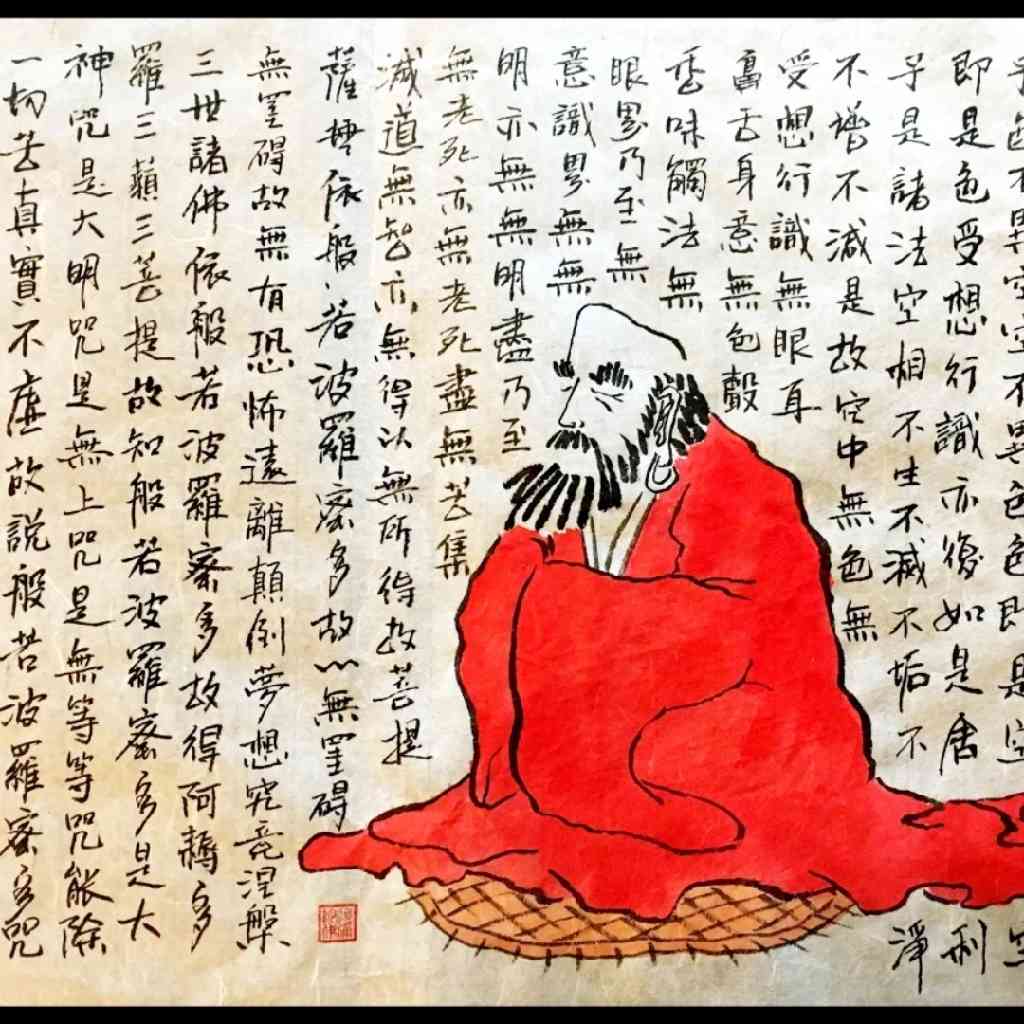 子色不異空空不異色色即是空
即是色受想行識亦復如是舍利
子是諸法空相不生不滅不垢不淨
不增不減是故空中無色無
受想行識無眼耳
鼻舌身意無色聲
香味觸法無
眼界乃至無
意識界無無
明亦無無明盡乃至
無老死亦無老死盡無苦集
滅道無智亦無得以無所得故菩提
薩埵依般若波羅蜜多故心無罣碍
無罣碍故無有恐怖遠離顛倒夢想究竟涅槃
三世諸佛依般若波羅蜜多故得阿耨多
羅三藐三菩提故知般若波羅蜜多是大
神咒是大明咒是無上咒是無等等咒能除
一切苦真實不虛故説般若波羅蜜多咒